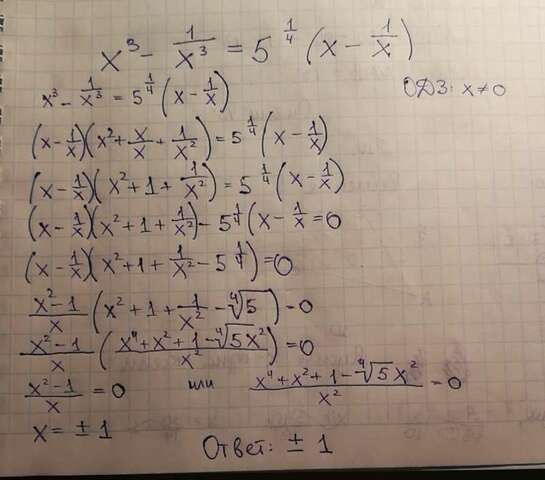 x³ - 1/x³ = 5^(1/4) (x - 1/x)
x³ - 1/x³ = 5^(1/4) (x - 1/x) ОДЗ: x ≠ 0
(x - 1/x)(x² + x/x + 1/x²) = 5^(1/4) (x - 1/x)
(x - 1/x)(x² + 1 + 1/x²) = 5^(1/4) (x - 1/x)
(x - 1/x)(x² + 1 + 1/x²) - 5^(1/4) (x - 1/x = 0
(x - 1/x)(x² + 1 + 1/x² - 5^(1/4)) = 0
(x² - 1)/x (x² + 1 + 1/x² - ⁴√5) = 0
(x² - 1)/x ((x⁴ + x² + 1 - ⁴√5 x²)/x²) = 0
(x² - 1)/x = 0 или (x⁴ + x² + 1 - ⁴√5 x²)/x² = 0
x = ± 1
Ответ: ± 1